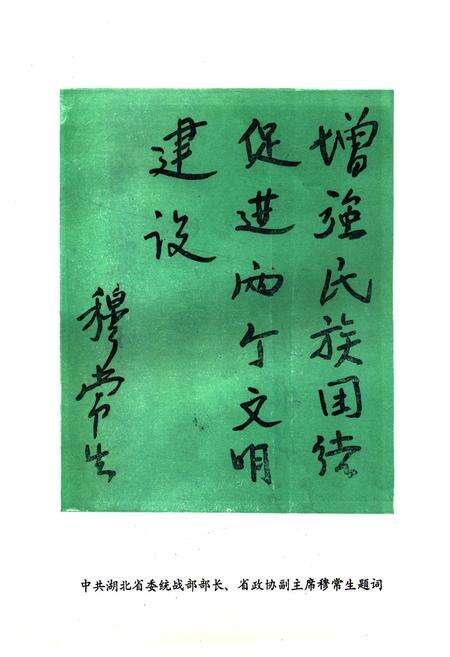 增强民族团结
促进两个文明
建设
穆常生
中共湖北省委统战部部长、省政协副主席穆常生题词